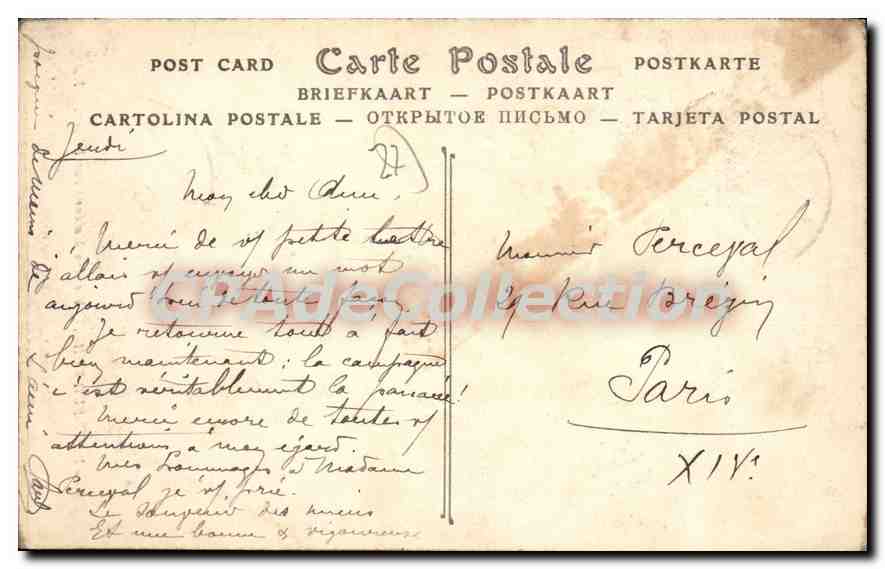 POST CARD Carte Postale POSTKARTE
BRIEFKAART — POSTKAART
CARTOLINA POSTALE — ОТКРЫТОЕ ПИСЬМО — TARJETA POSTAL
27
Jeudi
Mon cher Ami,
Merci de vf petite lettre
j'allais vf envoyer un mot
aujourd'hui de toute façon
Je retourne tout à fait
bien maintenant ; la campagne
c'est véritablement la panacée !
Merci encore de toutes vf
attentions à mon égard.
Mes hommages à Madame
Perceval je vf prie.
Le souvenir des miens
Et une bonne & vigoureuse
poignée de mains de
l'ami
Monsieur Perceval
29 Rue Brézin
Paris
XIVe
CPADeCollection